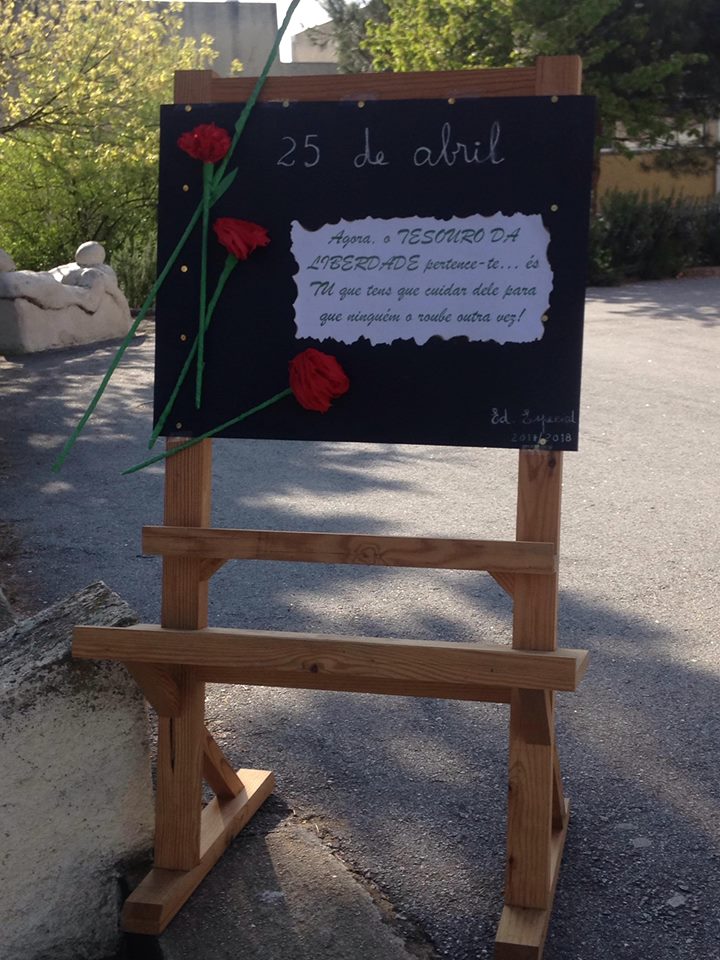 25 de abril
Agora, o TESOURO DA
LIBERDADE pertence-te... és
TU que tens que cuidar dele para
que ninguém o roube outra vez!
Ed. Especial
2017/2018